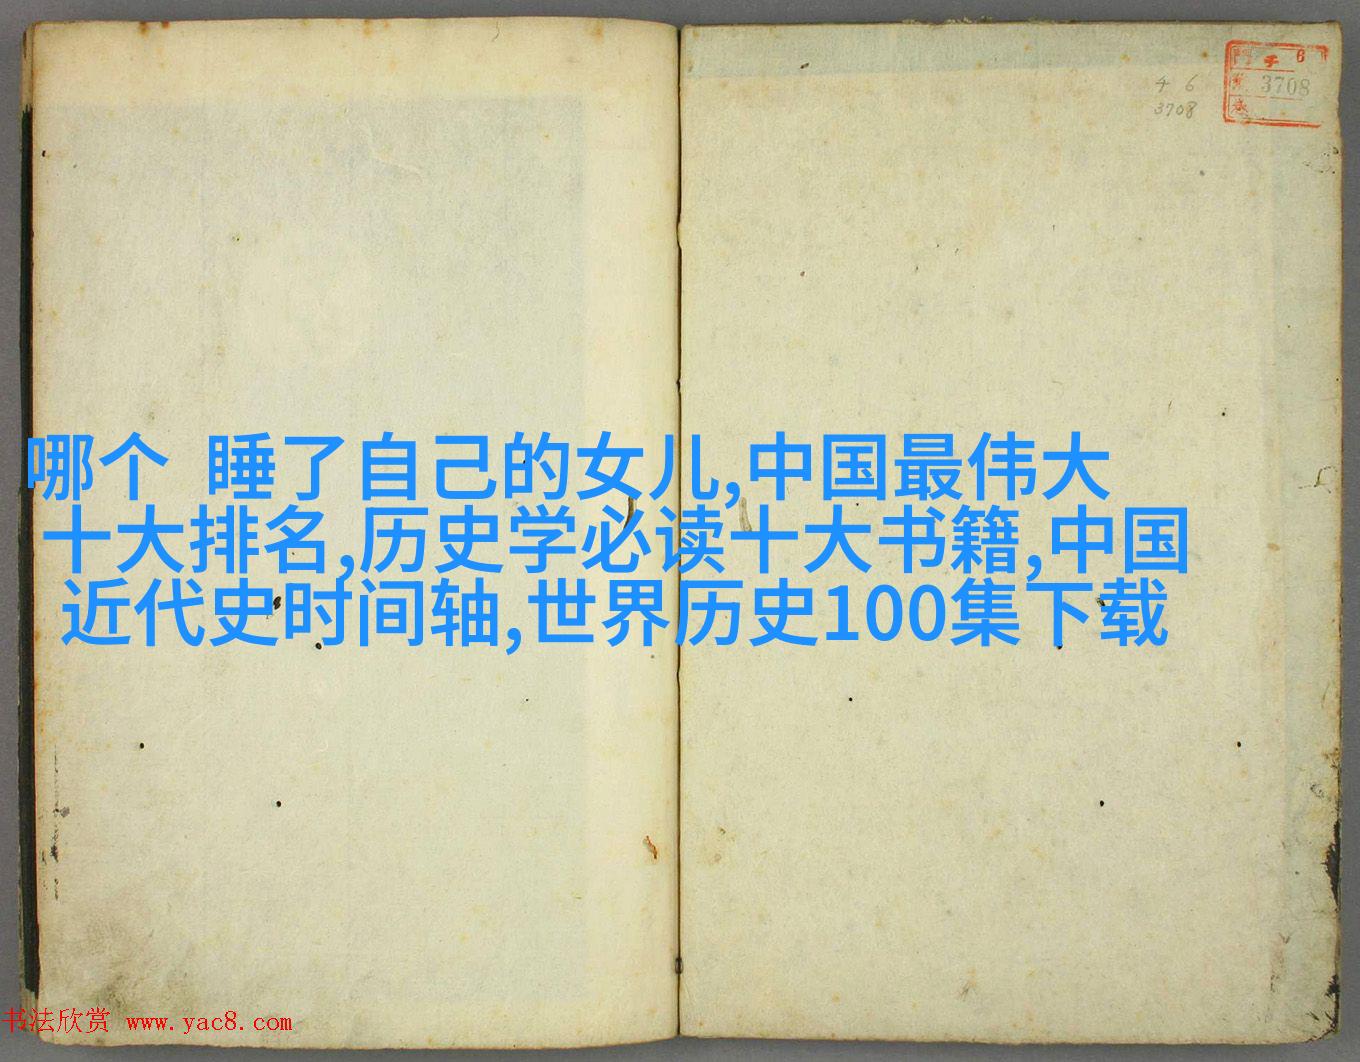 6
3708
4 6
3708
哪个 睡了自己的女儿,中国最伟大
十大排名,历史学必读十大书籍,中国
近代史时间轴,世界历史100集下载
书法欣赏 www.yac8.com